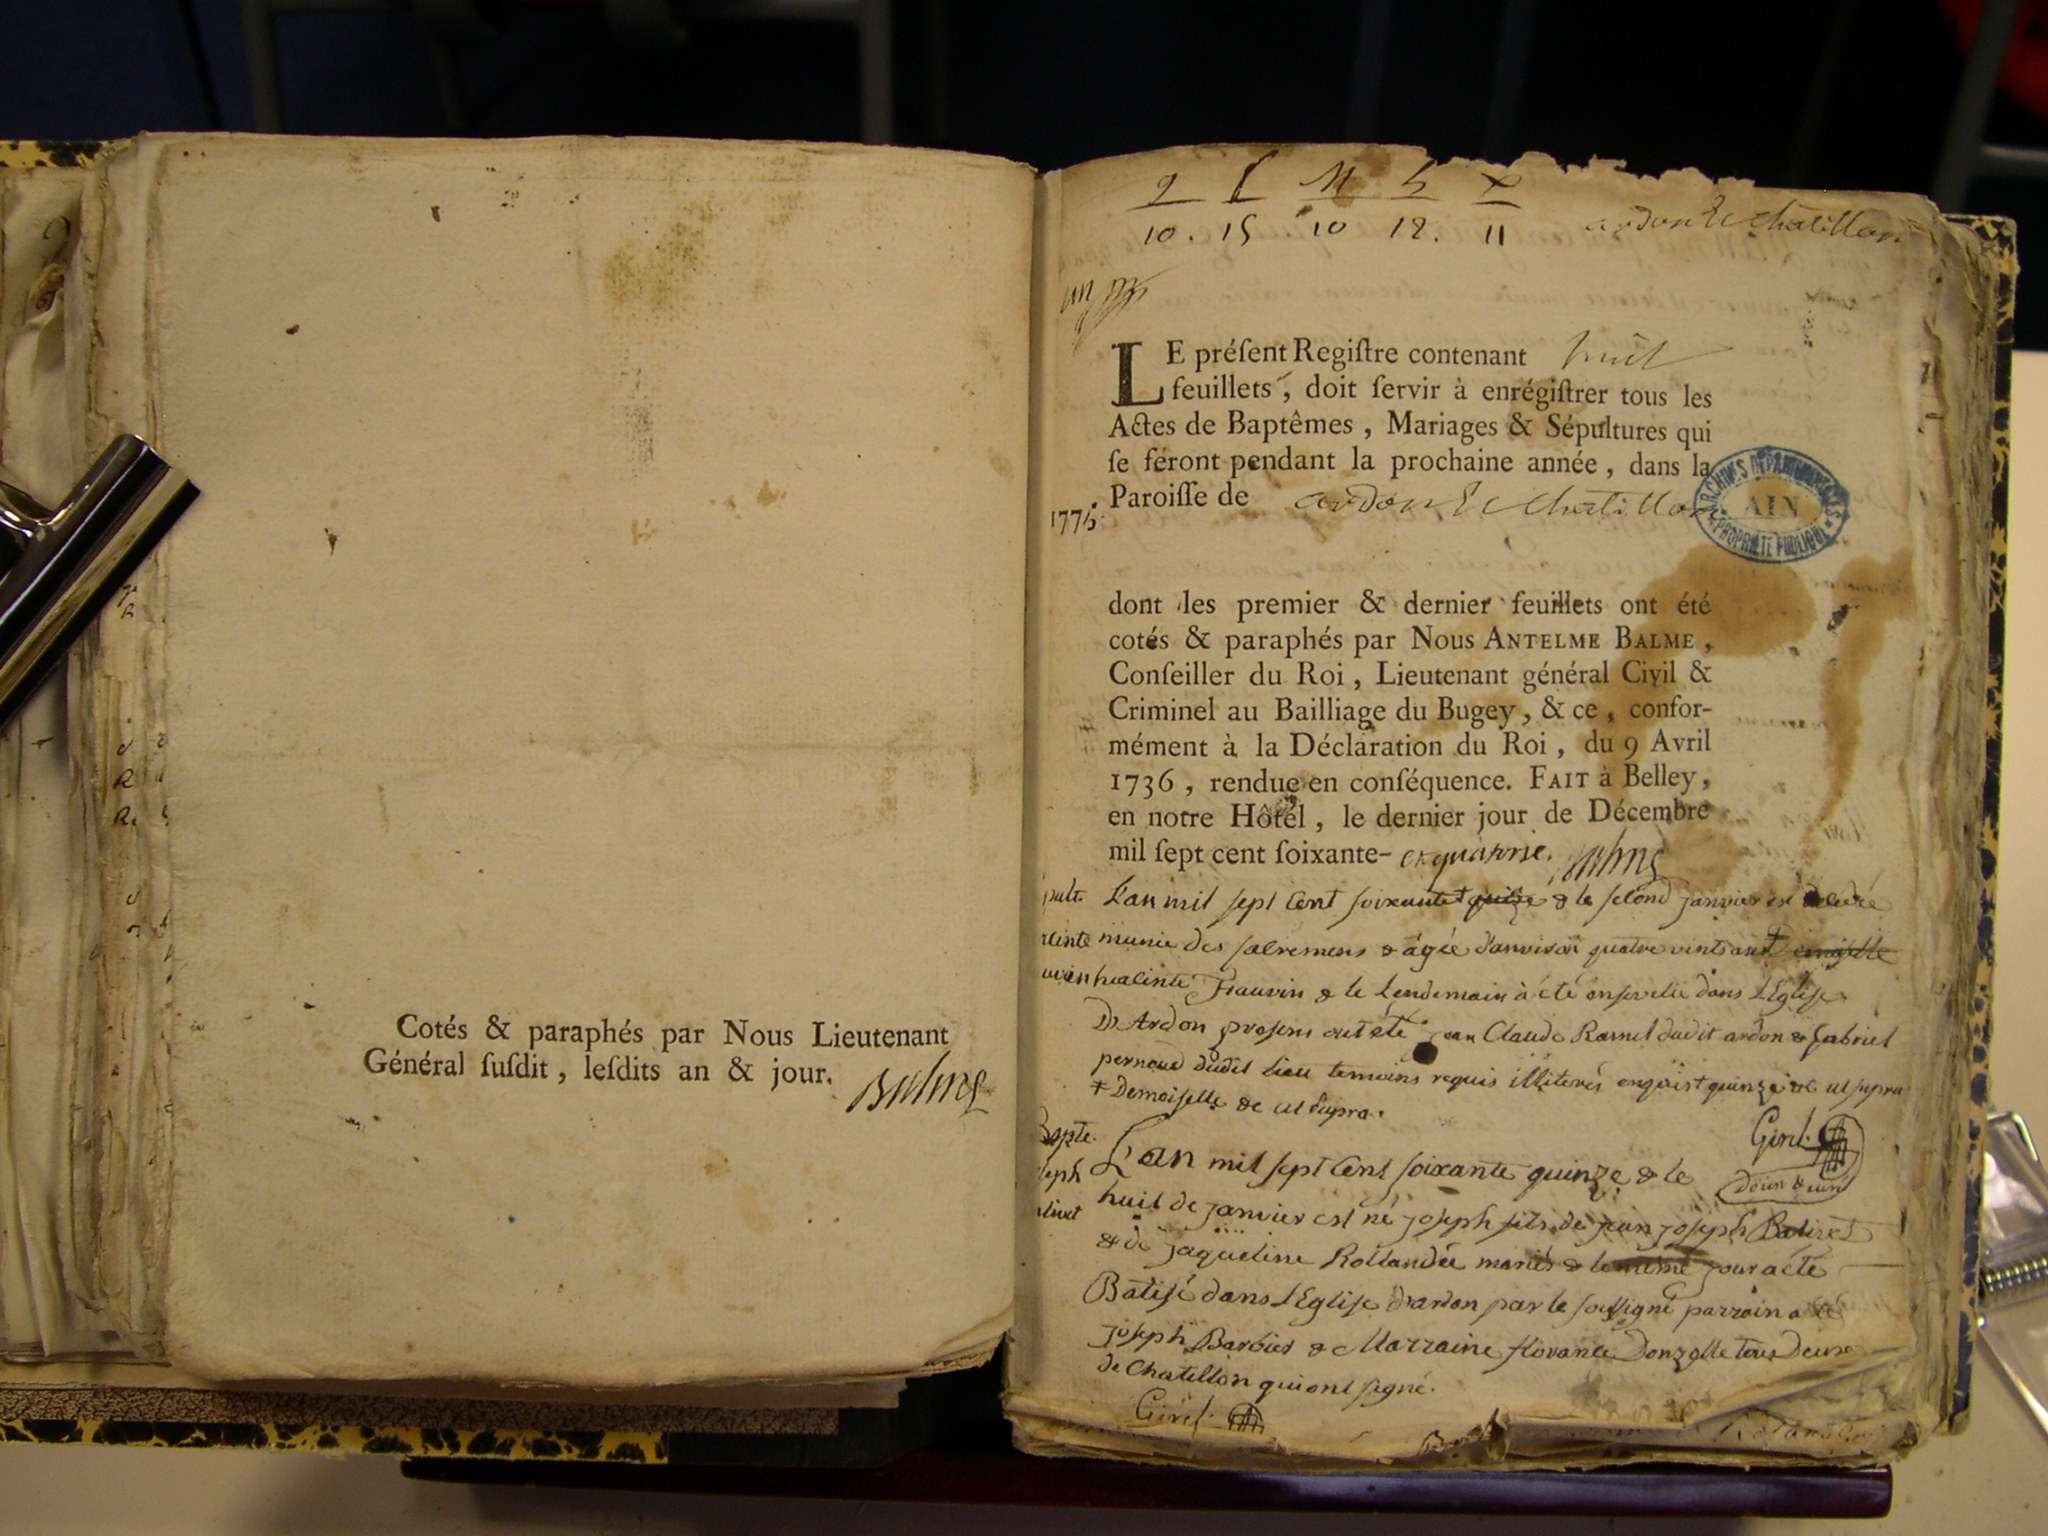 Cotés & paraphés par Nous Lieutenant
Général ſuſdit, leſdits an & jour.
Balme
10. 15 10 18. 11
ardon & Chatillon
LE préſent Regiſtre contenant huit
feuillets, doit ſervir à enrégiſtrer tous les
Actes de Baptêmes, Mariages & Sépultures qui
ſe feront pendant la prochaine année, dans la
Paroiſſe de ardon & Chatillon
1775
ARCHIVES DEPARTEMENTALES
AIN
PROPRIÉTÉ PUBLIQUE
dont les premier & dernier feuillets ont été
cotés & paraphés par Nous ANTELME BALME,
Conſeiller du Roi, Lieutenant général Civil &
Criminel au Bailliage du Bugey, & ce, confor-
mément à la Déclaration du Roi, du 9 Avril
1736, rendue en conſéquence. FAIT à Belley,
en notre Hôtel, le dernier jour de Décembre
mil ſept cent ſoixante- et quatorze. Balme
L'an mil sept cent soixante & le second janvier est decedée
munie des sacremens & agée d'anviron quatre vints ans
hiacinte & le lendemain à été ansevelie dans l'Eglise
D'Ardon presens ont été jean Claude Ravinel dudit ardon & Gabriel
pernoud dudit lieu temoins requis illiterés quinze & ut supra
+ Demoiselle & ut supra.
Girel.
Bapte.
L'an mil sept cent soixante quinze & le
huit de janvier est né joseph fils de jean joseph Balivet
& de jaqueline Rollandée mariés & le même jour a eté
Batisé dans l'Eglise d'ardon par le soussigné parrain a eté
joseph Barbier & Marraine florance Donzelle tous deux
de Chatillon qui ont signé.
Girel.